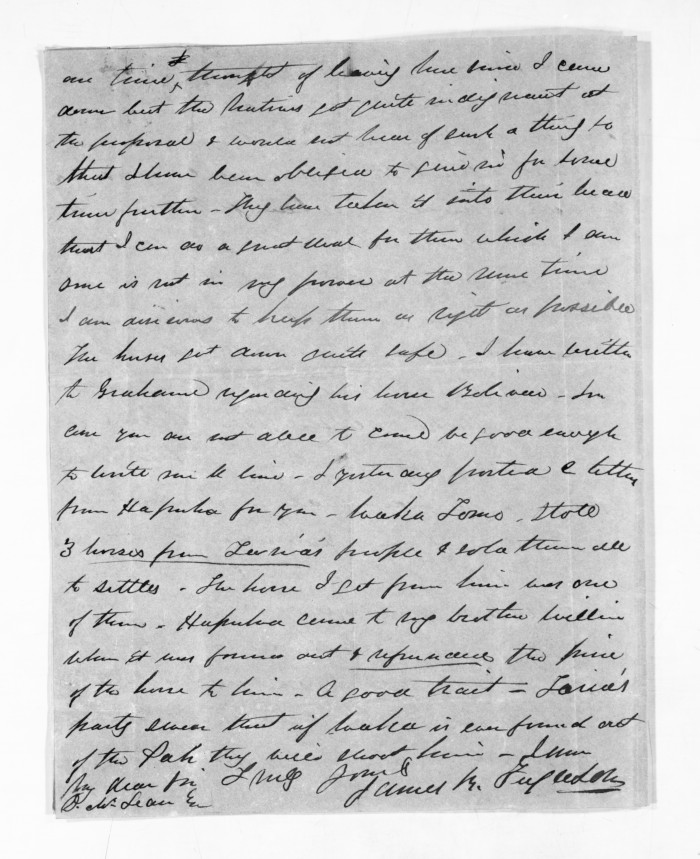 one time I thought of leaving here since I came
down but the Natives got quite indignant at
the proposal & would not hear of such a thing so
that I have been obliged to give in for some
time further - They have taken it into their head
that I can do a great deal for them which I am
one is not in my power at the same time
I am anxious to keep them as right as possible
The horses got down quite safe - I have written
to Grahame regarding his horse Bolivar - In
case you are not able to come be good enough
to write me a line - I yesterday posted a letter
from Hapuka for you - Waka Tomo stole
3 horses from Tareia's people & sold them all
to settlers - The horse I got from him was one
of them - Hapuka came to my brother William
when it was found out & refunded the price
of the horse to him - A good trait - Tareia's
party swear that if Waka is ever found out
of the Pah they will shoot him - I am
My dear Sir Truly Yours
D. McLean Esq James H. Ferguson